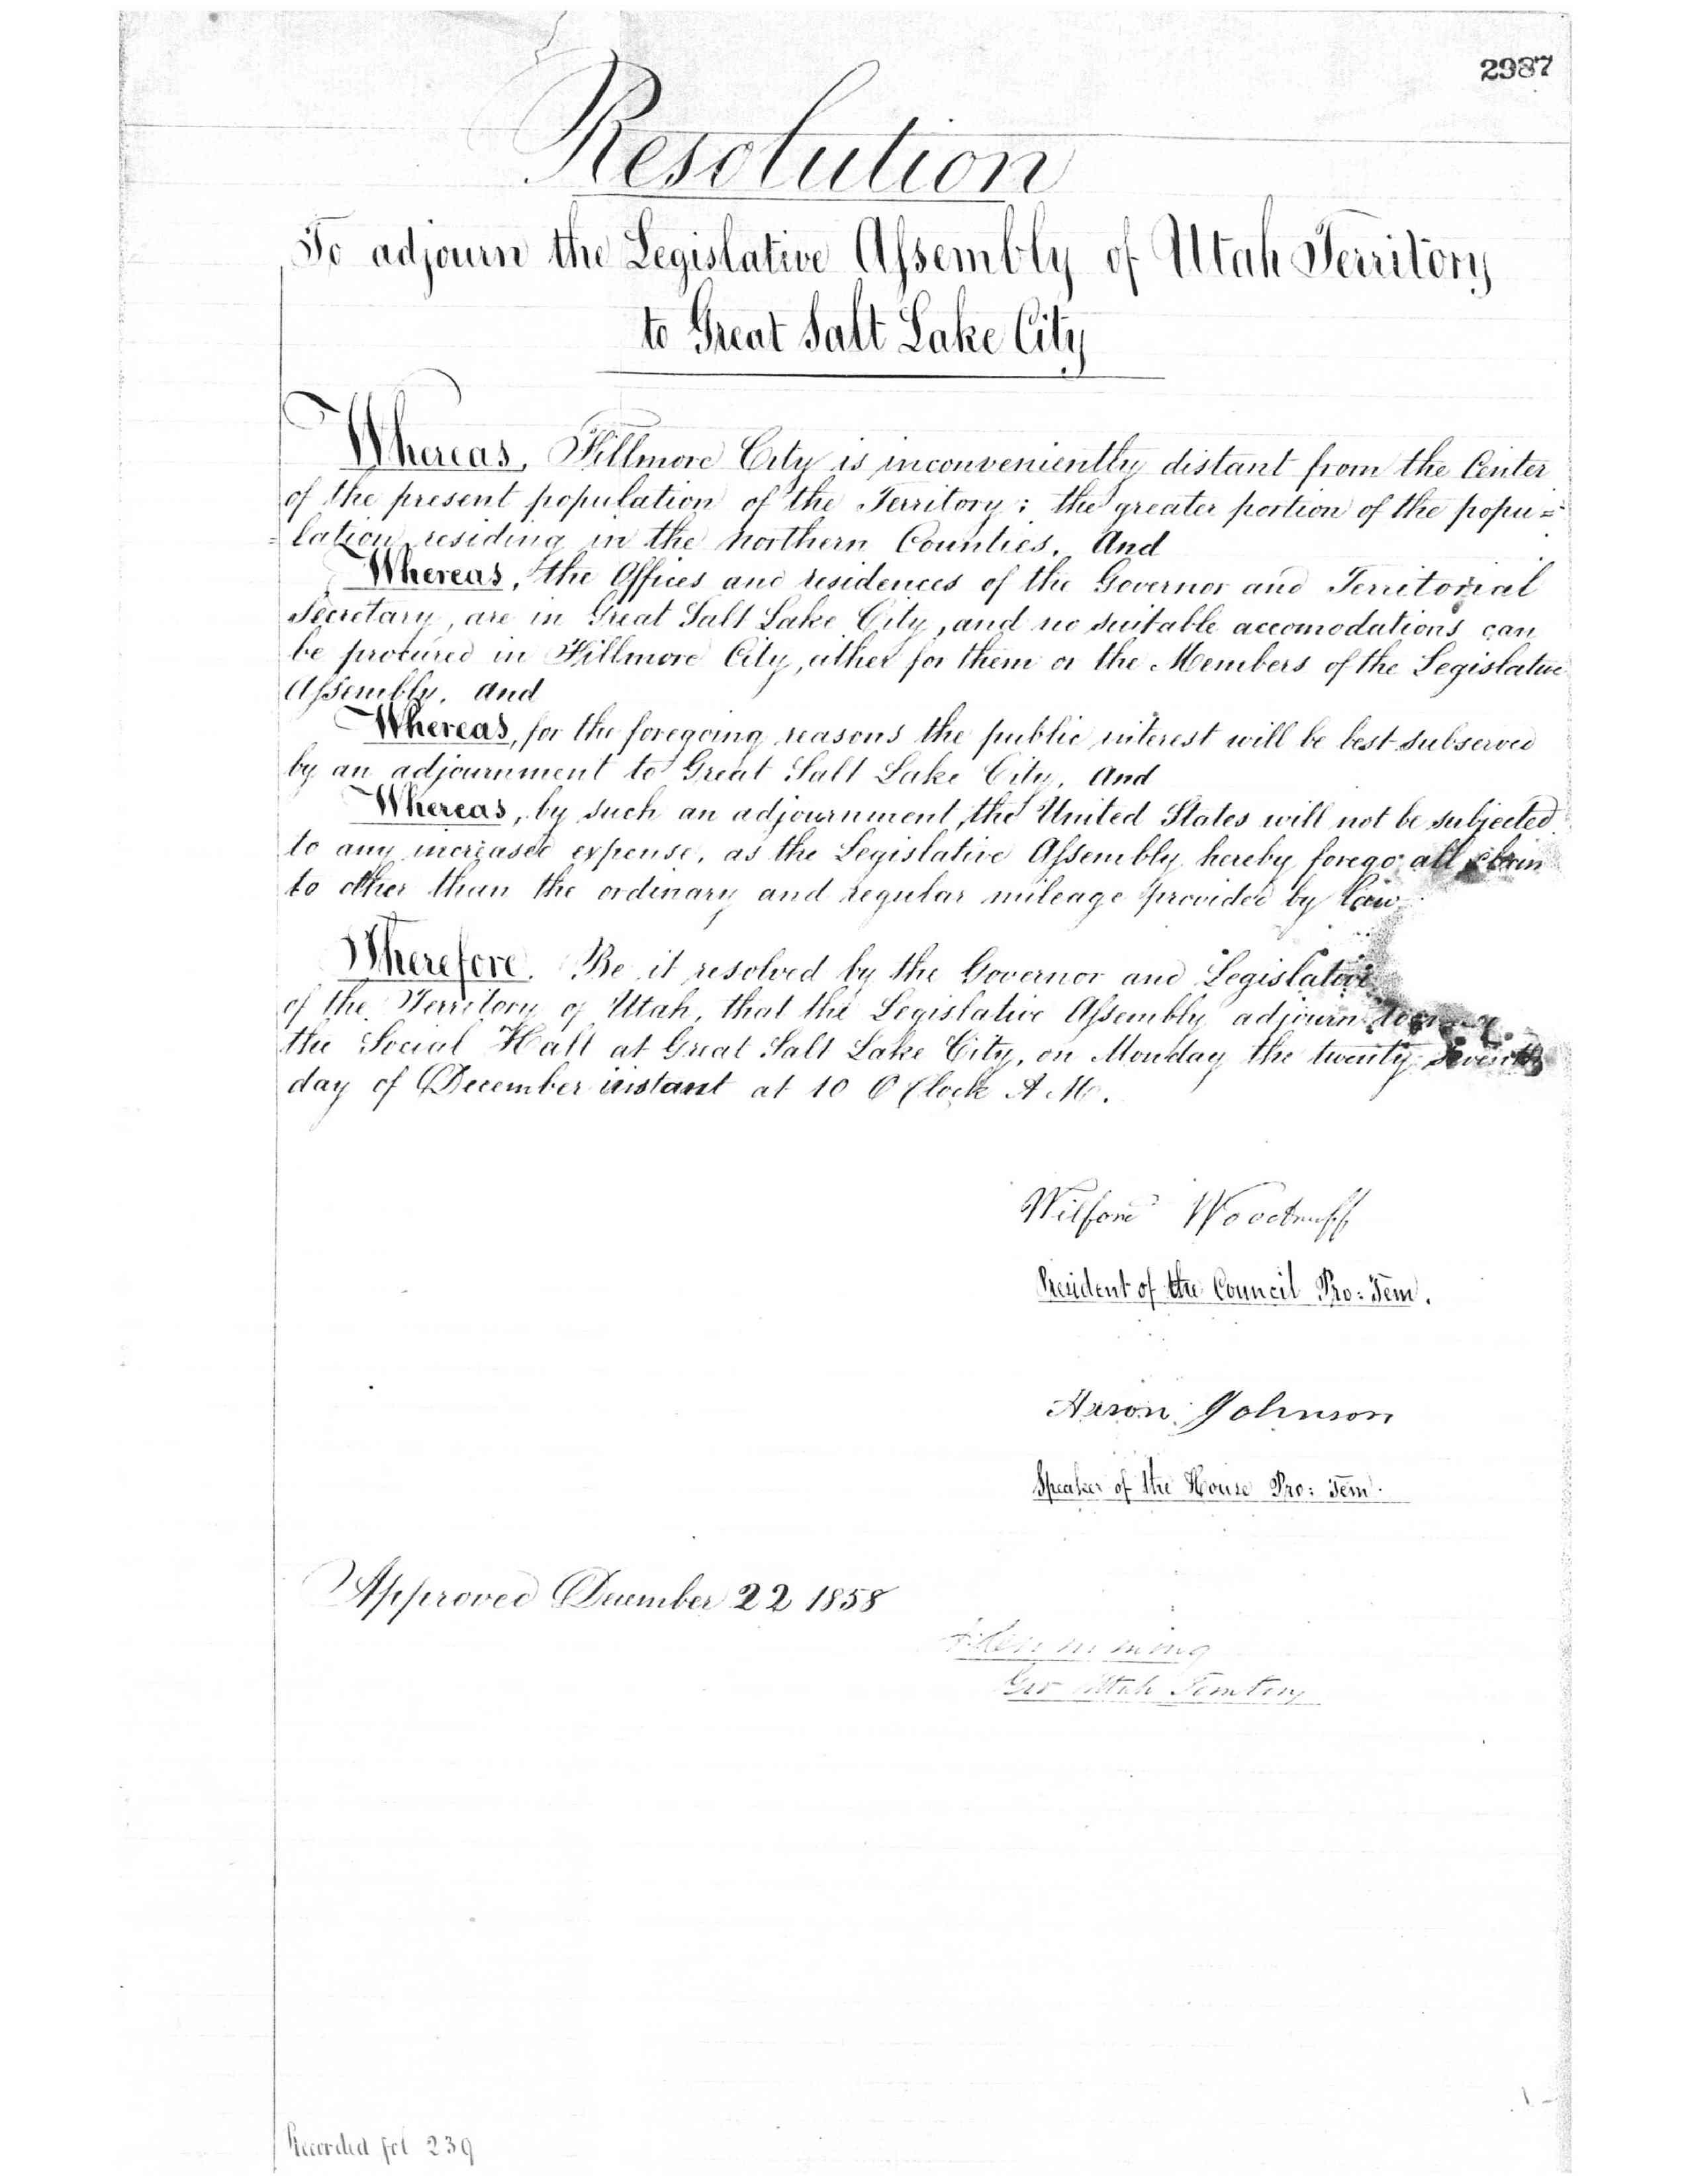 2987
Resolution
To adjourn the Legislative Assembly of Utah Territory
to Great Salt Lake City
Whereas, Fillmore City is inconveniently distant from the Center
of the present population of the Territory; the greater portion of the popu=
=lation residing in the northern Counties. And
Whereas, the Offices and residences of the Governor and Territorial
Secretary, are in Great Salt Lake City, and no suitable accomodations can
be procured in Fillmore City, either for them or the Members of the Legislative
Assembly. And
Whereas, for the foregoing reasons the public interest will be best subserved
by an adjournment to Great Salt Lake City. And
Whereas, by such an adjournment, the United States will not be subjected
to any increased expense, as the Legislative Assembly hereby forego all claim
to other than the ordinary and regular mileage provided by law.
Wherefore. Be it resolved by the Governor and Legislative
of the Territory of Utah, that the Legislative Assembly adjourn to
the Social Hall at Great Salt Lake City, on Monday the twenty seventh
day of December instant at 10 O Clock A M.
Wilford Woodruff
President of the Council Pro: Tem.
Aaron Johnson
Speaker of the House Pro: Tem.
Approved December 22 1858
A. Cumming
Gov Utah Territory
Recorded fol 239